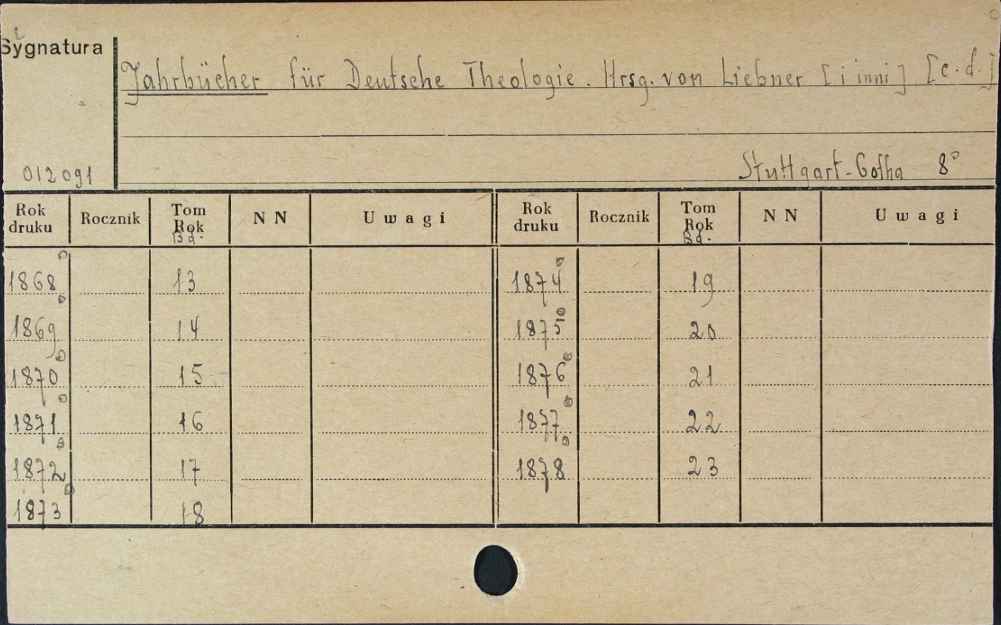 Sygnatura
Jahrbücher für Deutsche Theologie. Hrsg. von Liebner [i inni] [c.d.]
012091
Stuttgart-Gotha 8°
Rok druku Rocznik Tom Rok Bd. NN Uwagi Rok druku Rocznik Tom Rok Bd. NN Uwagi
1868 13 1874 19
1869 14 1875 20
1870 15 1876 21
1871 16 1877 22
1872 17 1878 23
1873 18